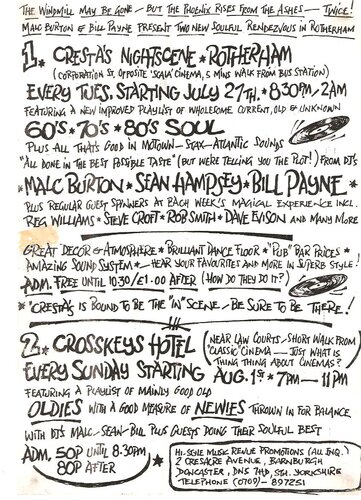 The Windmill may be gone — but the Phoenix rises from the ashes — twice!
Malc Burton & Bill Payne present two new soulful rendezvous in Rotherham
1. Cresta's Nightscene * Rotherham
(Corporation St, opposite 'Scala' Cinema, 5 mins walk from bus station)
Every Tues. starting July 27th. * 8.30pm/2am
Featuring a new improved playlist of wholesome current, old & unknown
60's * 70's * 80's Soul
Plus all that's good in Motown - Stax - Atlantic sounds
"All done in the best possible taste" (but we're telling you the plot!) from DJ's
* Malc Burton * Sean Hampsey * Bill Payne *
Plus regular guest spinners at each week's magical experience incl.
Reg Williams * Steve Croft * Rob Smith * Dave Evison and many more
Great decor & atmosphere * Brilliant dance floor * "Pub" bar prices *
Amazing sound system * — Hear your favourites and more in superb style!
Adm. free until 10.30/£1.00 after (How do they do it?)
* "Cresta's is bound to be the "in" scene — be sure to be there!
2. Crosskeys Hotel
(Near Law Courts, short walk from 'Classic' Cinema — just what is thing thing about cinemas?)
Every Sunday starting Aug. 1st * 7pm — 11pm
Featuring a playlist of mainly good old
Oldies with a good measure of Newies thrown in for balance
With DJ's Malc — Sean — Bill plus guests doing their soulful best
Adm. 50p until 8.30pm
80p after
Hi-Style Music Revue Promotions (All Enq.)
2 Cresacre Avenue, Barnburgh
Doncaster, DN5 7HD, Sth. Yorkshire
Telephone (0709) - 897251